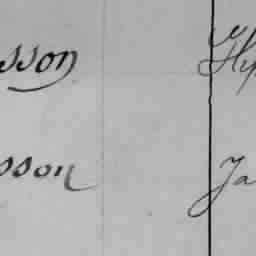 sson Hy
sson Ja